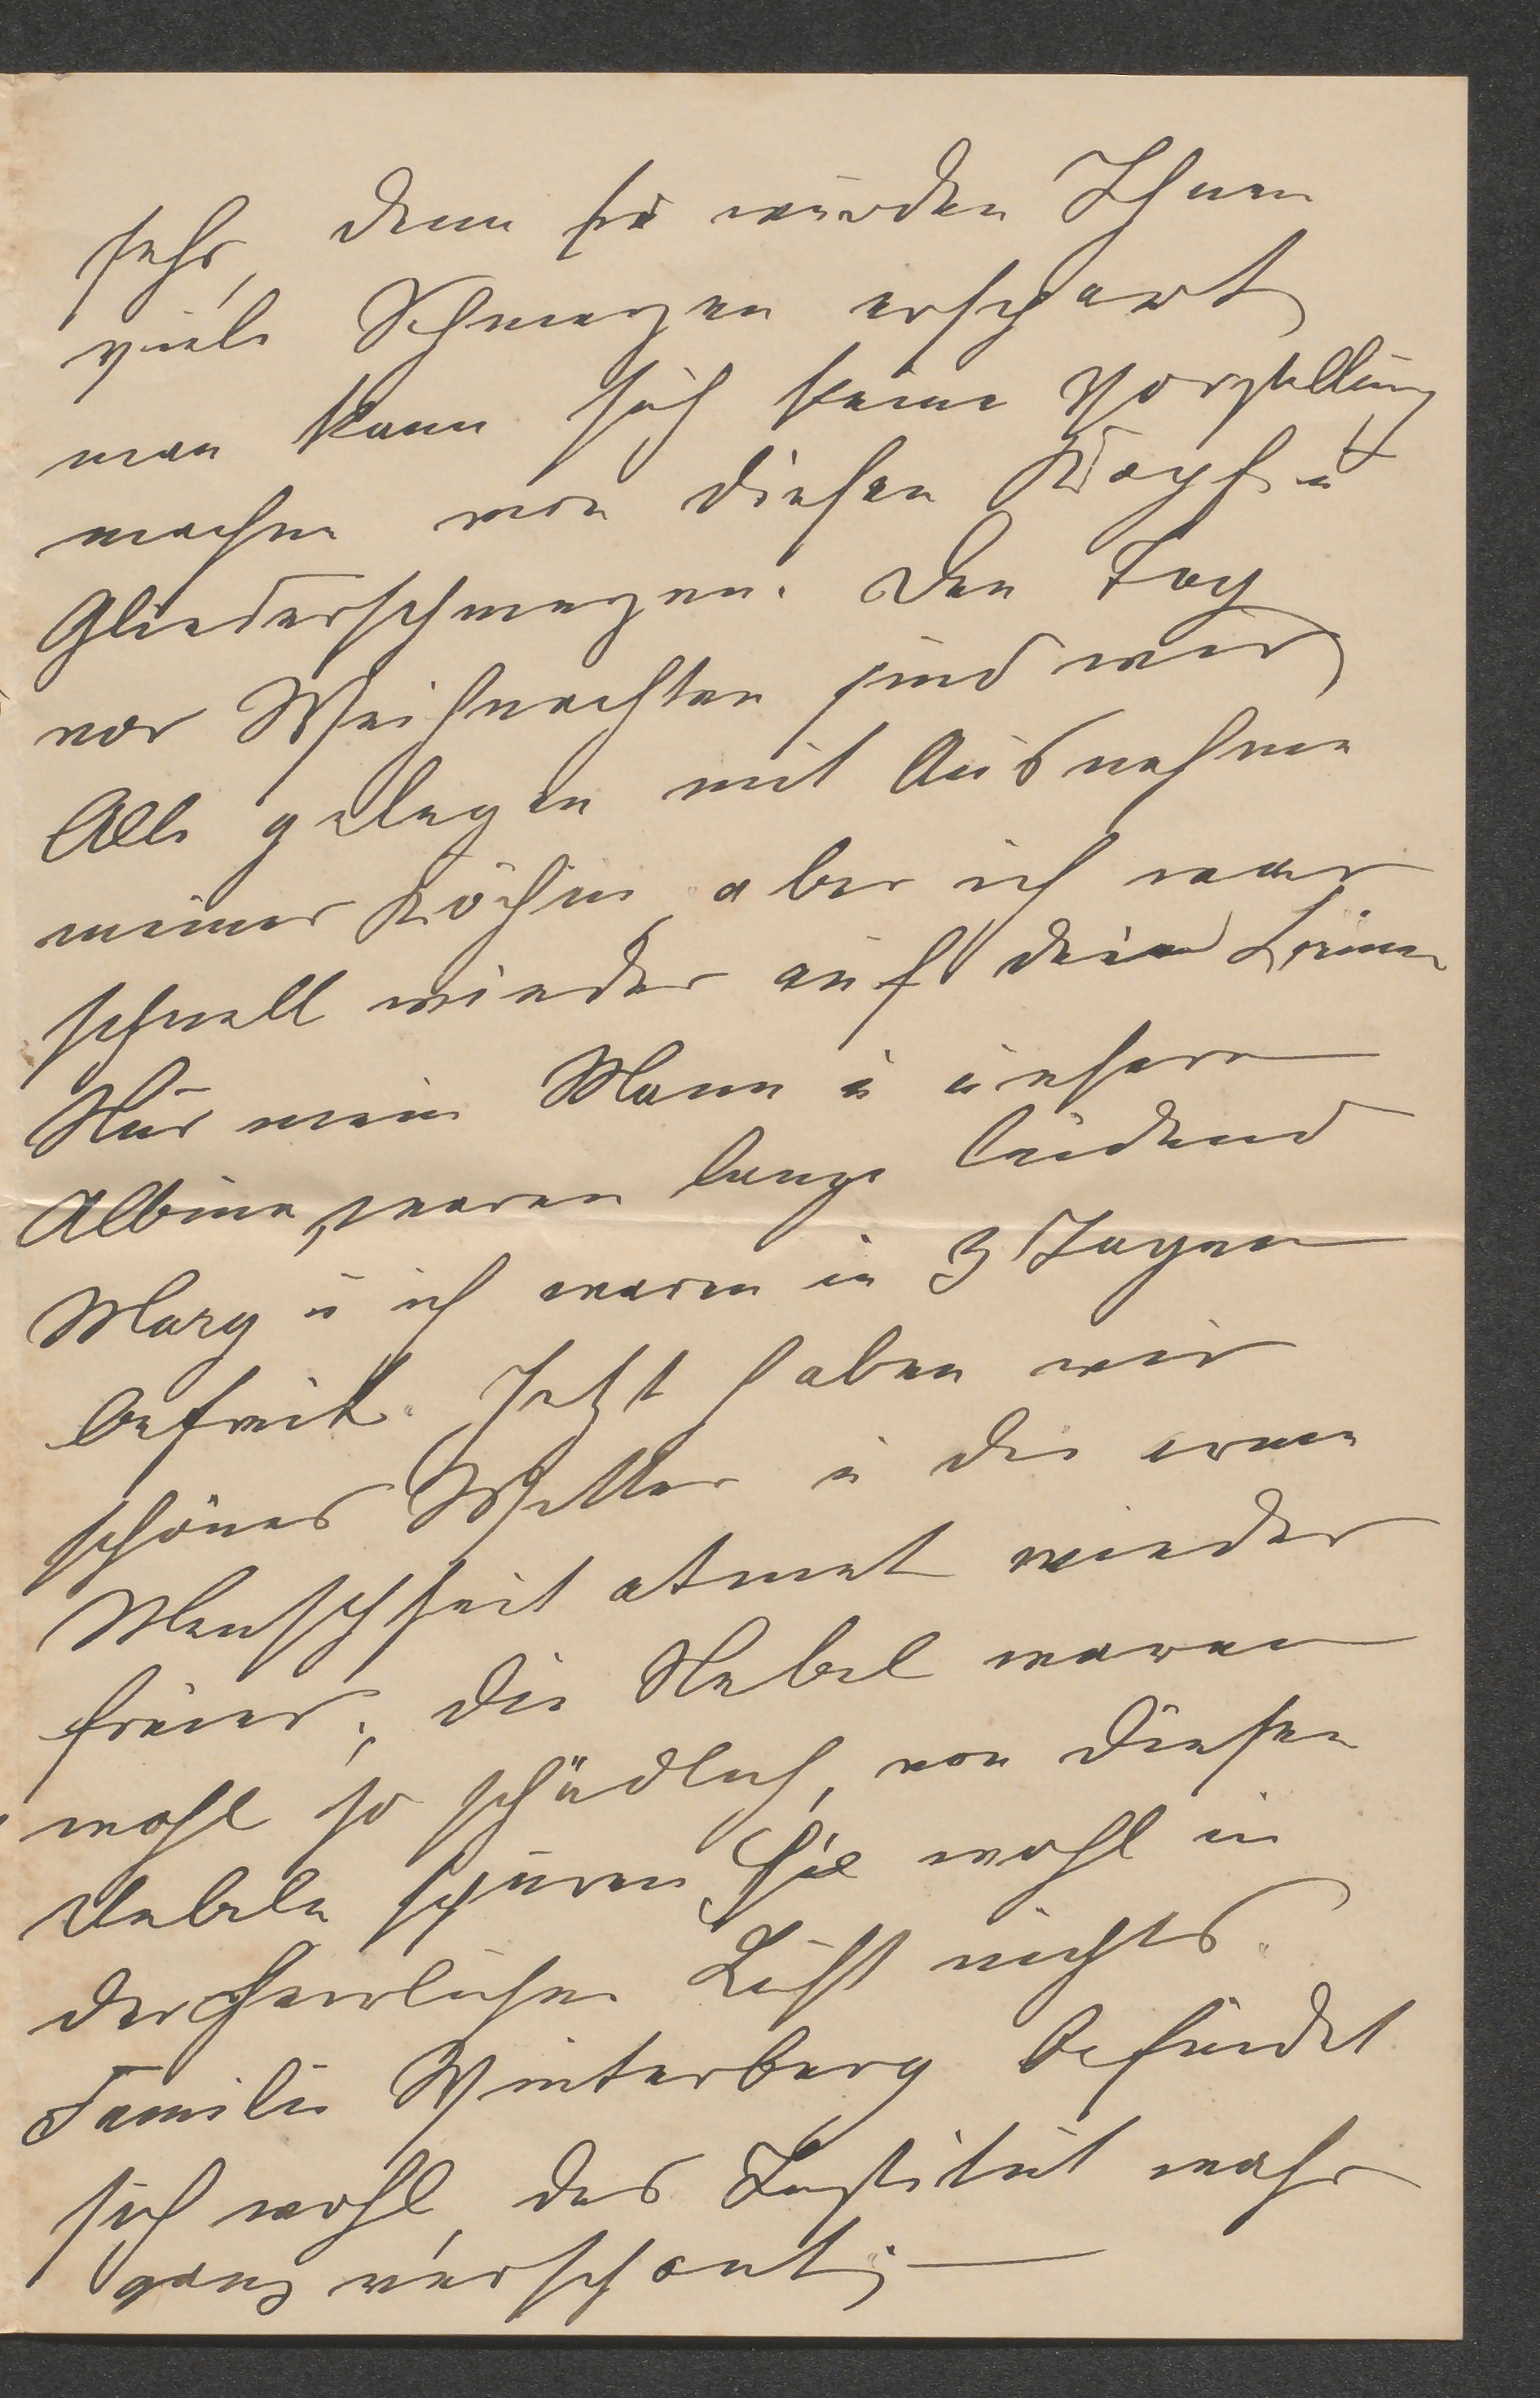 sehr, denn sie würden Ihnen
viele Schmerzen erspart
man kann sich keine Vorstellung
machen von diesen Kopf- u
Gliederschmerzen. Den Tag
vor Weihnachten sind wir
Alle gelegen mit Ausnahme
meiner Köchin, aber ich war
schnell wieder auf den Beinen
Nur mein Mann u unsere
Albine, waren lange leidend
Mary u ich waren in 3 Tagen
befreit. Jetzt haben wir
schönes Wetter u die arme
Menschheit atmet wieder
freier, die Nebel waren
wohl so schädlich, von diesen
Nebeln spüren Sie wohl in
der herrlichen Luft nichts.
Familie Winterberg befindet
sich wohl, das Institut wahr
ganz verschont; —